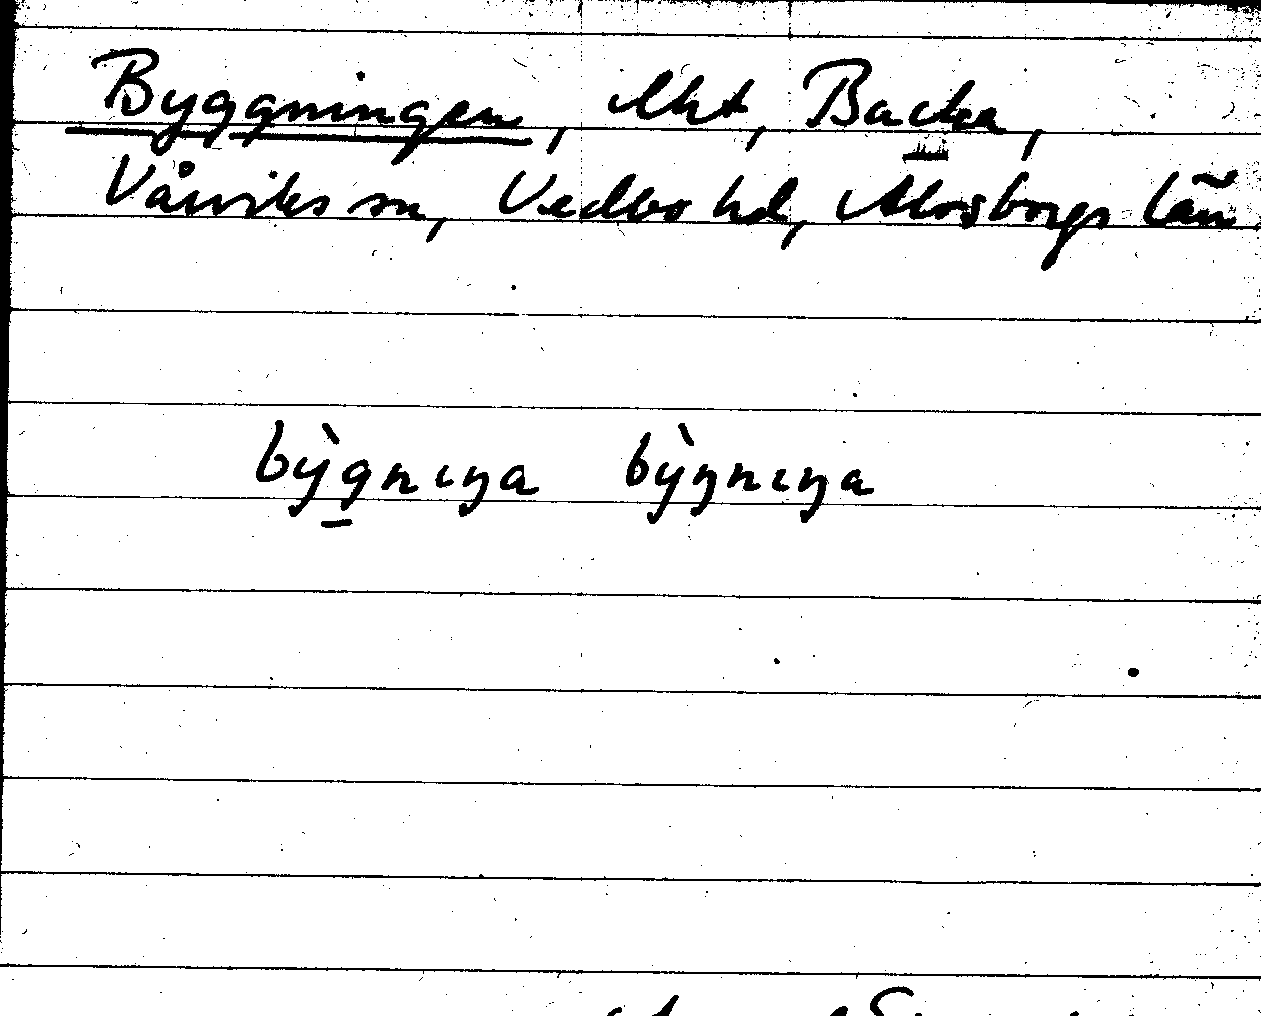 Byggningen, lht, Backa,
Vårviks sn, Vedbo hd, Älvsborgs län
bỳgnıŋa bỳŋnıŋa